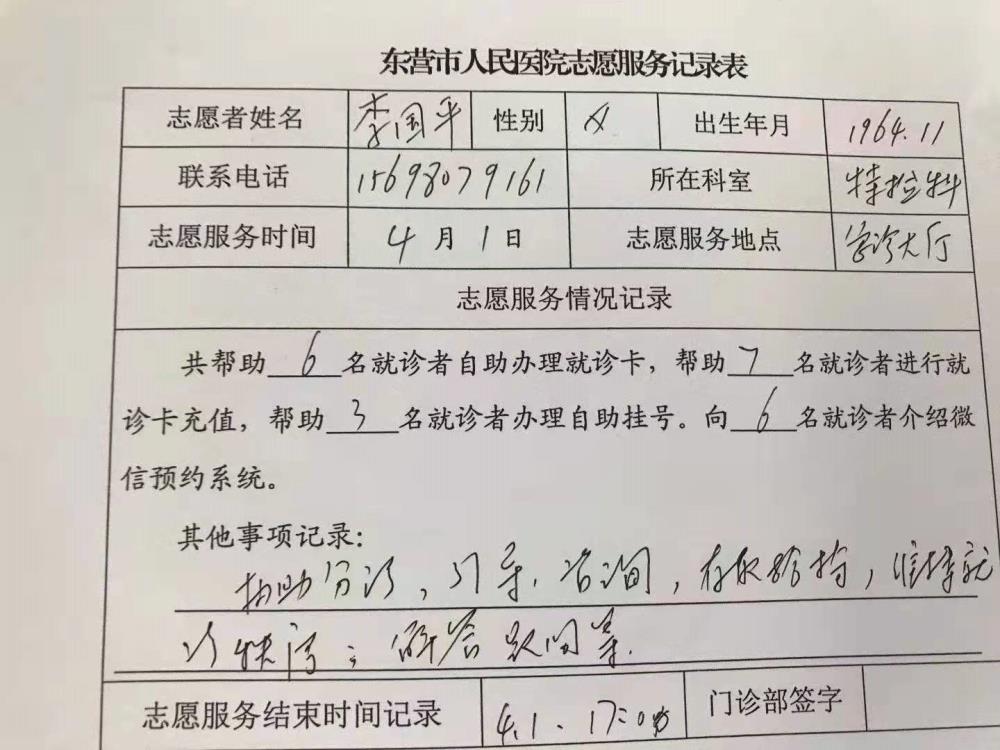 东营市人民医院志愿服务记录表
志愿者姓名 李国平 性别 女 出生年月 1964.11
联系电话 15698079161 所在科室 特检科
志愿服务时间 4月1日 志愿服务地点 门诊大厅
志愿服务情况记录
共帮助 6 名就诊者自助办理就诊卡，帮助 7 名就诊者进行就
诊卡充值，帮助 3 名就诊者办理自助挂号。向 6 名就诊者介绍微
信预约系统。
其他事项记录：
协助分诊，引导、咨询，维持就
诊秩序；解答疑问等.
志愿服务结束时间记录 4.1、17:00 门诊部签字